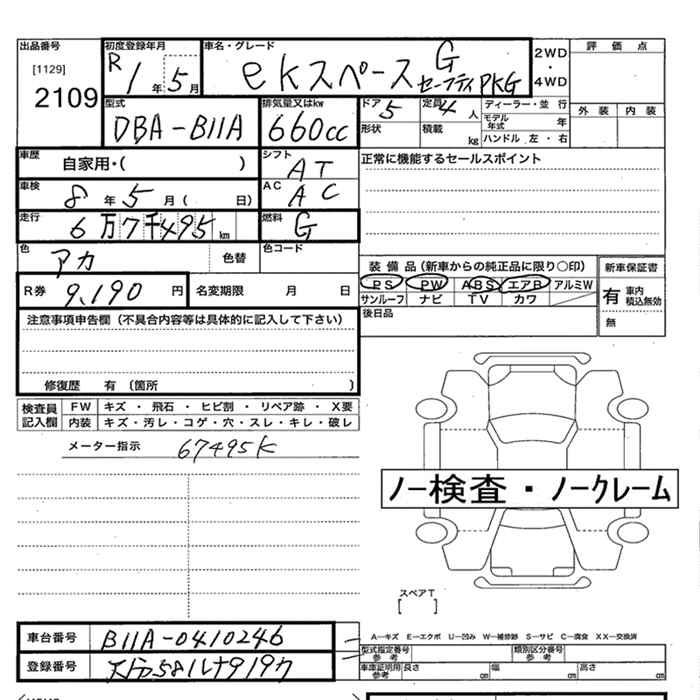 出品番号 初度登録年月 車名・グレード 2WD・4WD 評価点
[1129]
2109
R 1年 5月
ekスペース G セーフティPKG
外装 内装
型式 排気量又はkw ドア 定員 ディーラー・並 行
DBA-B11A 660cc 5 4人
形状 積載 kg モデル年式 年
ハンドル 左・右
車歴 自家用・( ) シフト AT
正常に機能するセールスポイント
車検 8年 5月( 日) AC AC
走行 6万7千495km 燃料 G
色 アカ 色替 色コード
装備品(新車からの純正品に限り○印) 新車保証書
PS PW ABS エアB アルミW
サンルーフ ナビ TV カワ
有 車内積込無効
無
R券 9,190円 名変期限 月 日
後日品
注意事項申告欄(不具合内容等は具体的に記入して下さい)
修復歴 有 〔箇所 〕
検査員記入欄 FW キズ・飛石・ヒビ割・リペア跡・X要
内装 キズ・汚レ・コゲ・穴・スレ・キレ・破レ
メーター指示 67495K
ノー検査・ノークレーム
スペアT
[ ]
車台番号 B11A-0410246
A―キズ E―エクボ U―凹み W―補修跡 S―サビ C―腐食 XX―交換済
型式指定番号 参考 類別区分番号 参考
登録番号
車庫証明用参考 長さ cm 幅 cm 高さ cm